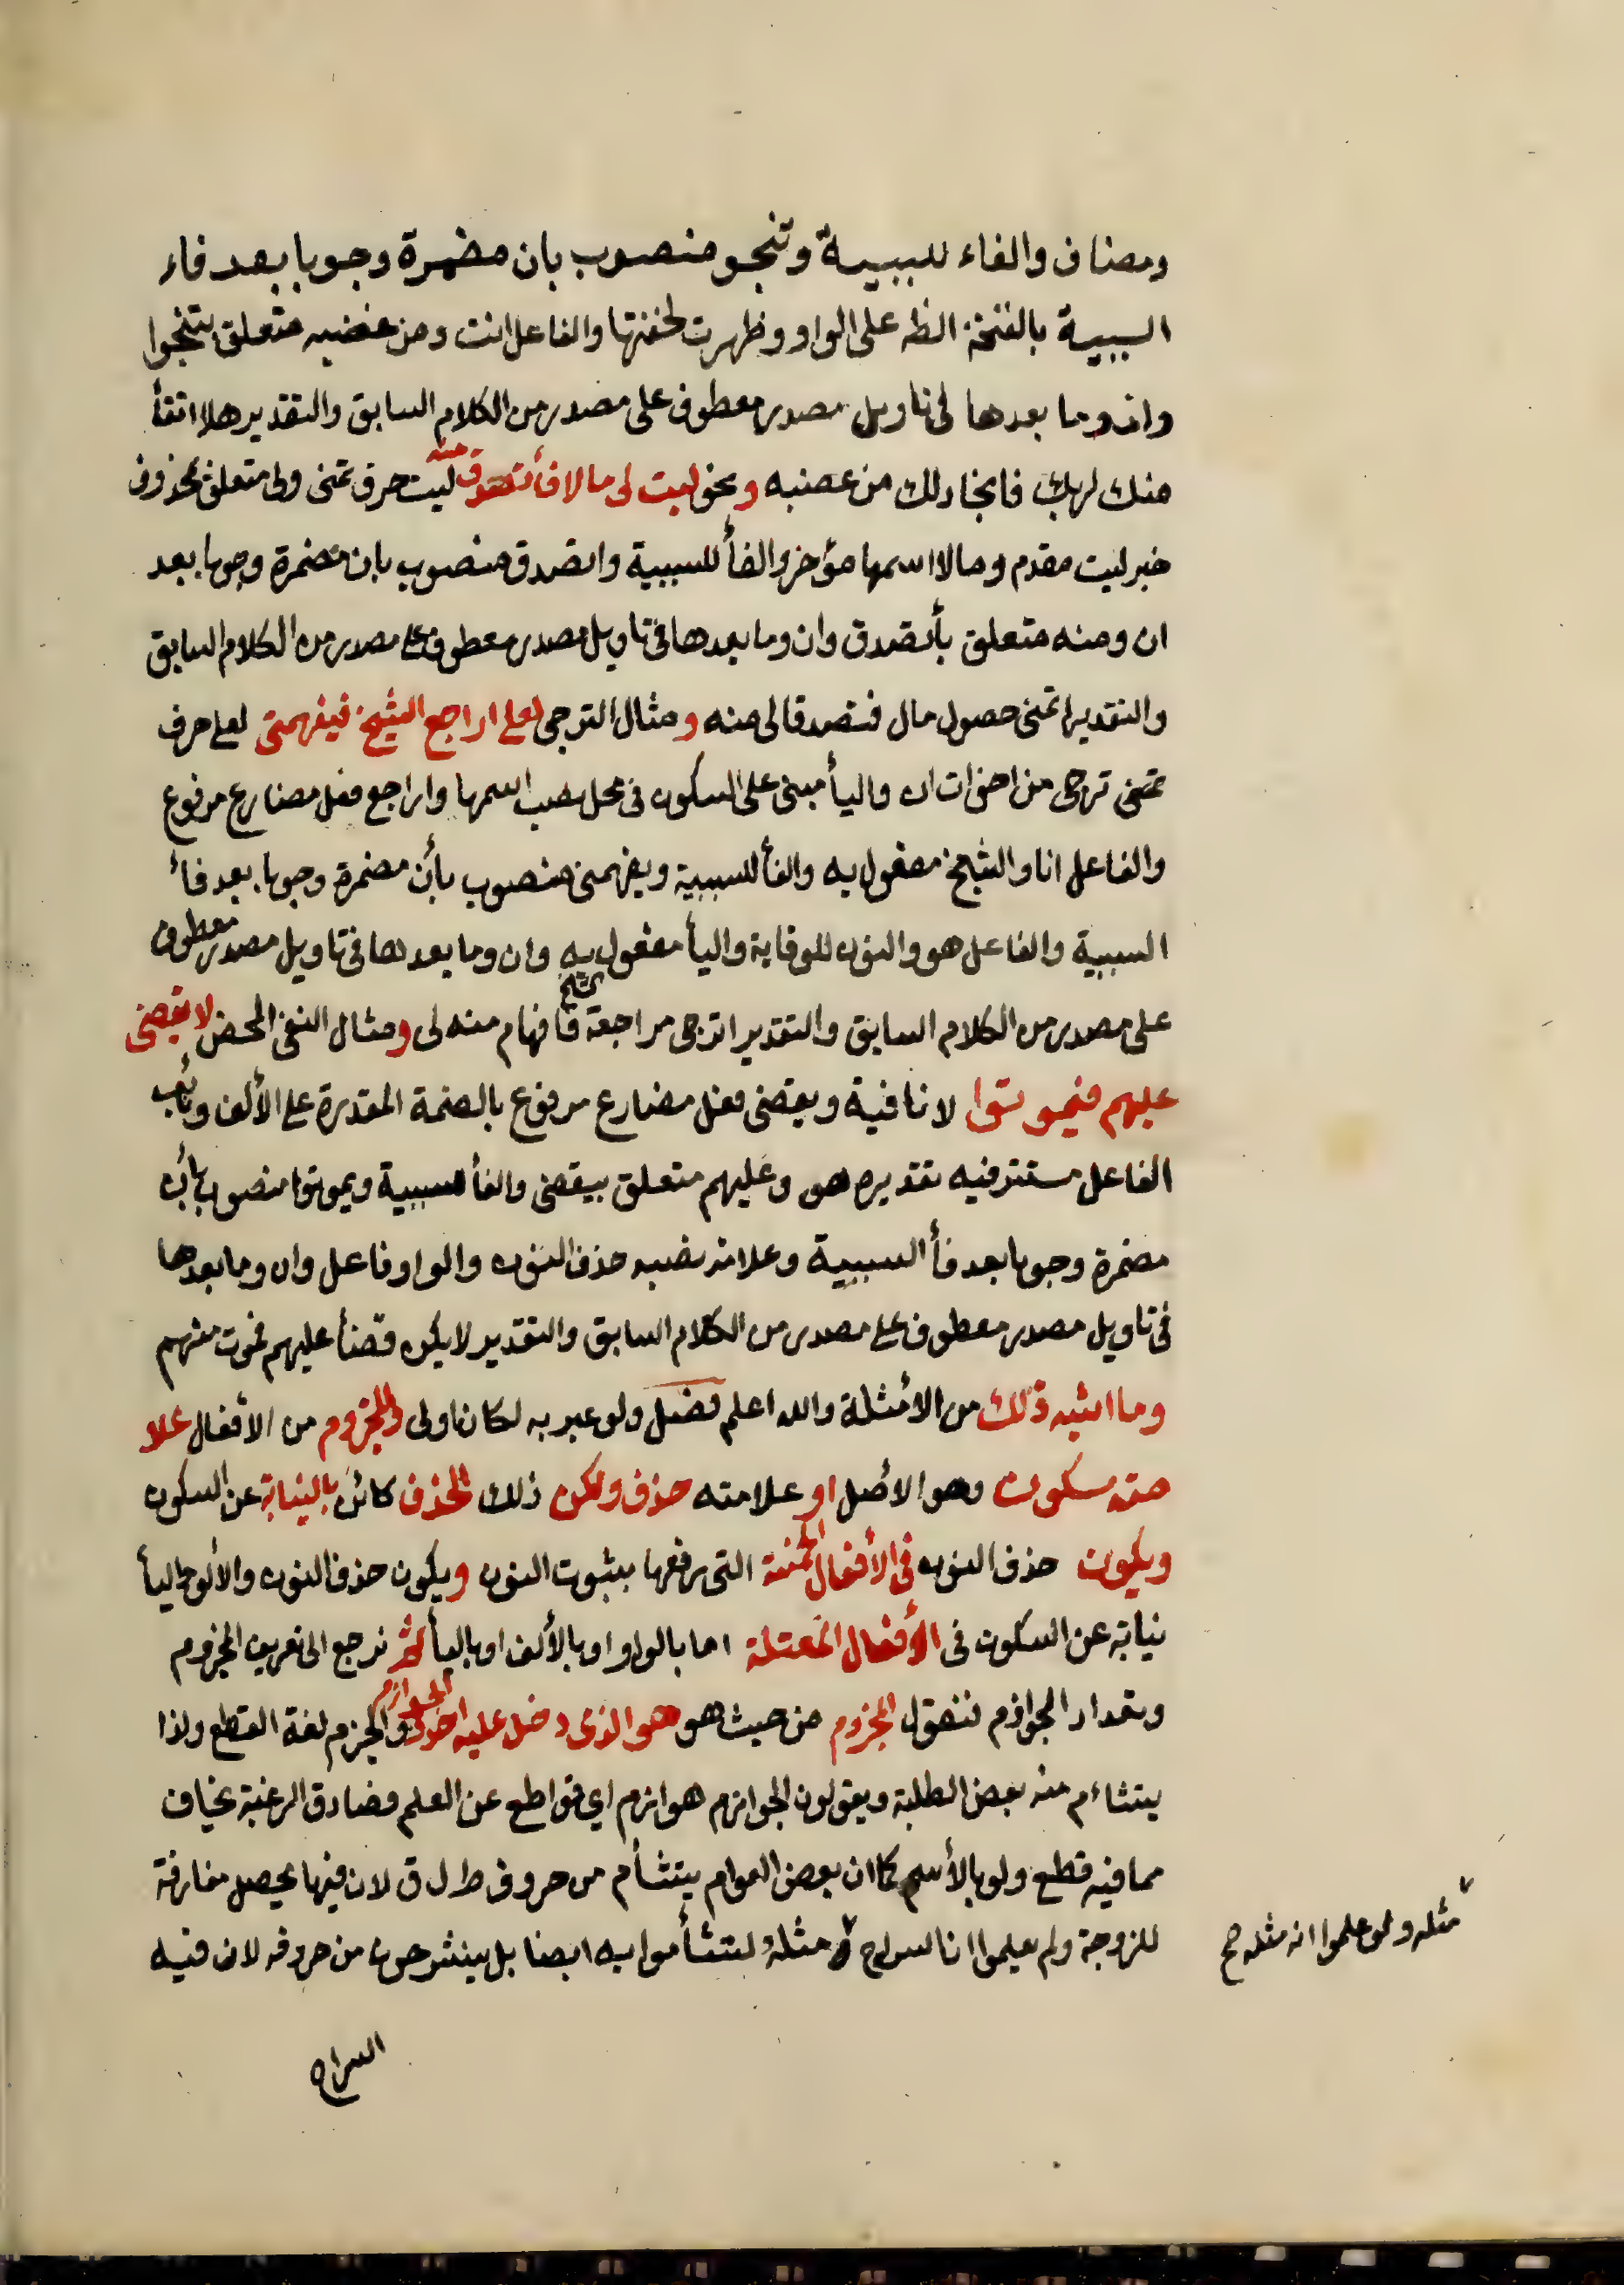 ومضاف والفاء للسببية وتنجو منصوب بان مضمرة وجوبا بعد فاء
السببية بالفتحة الظ على الواو وظهرت لخفتها والفاعل انت ومن غضبه متعلق بتنجوا
وان وما بعدها فى تاويل مصدر معطوف على مصدر من الكلام السابق والتقدير هلا اتقأ
منك لربك فانجا ولك من غضبه ونحو ليت لى مالا فأتصدق منه ليت حرف تمنى ولى متعلق بمحذوف
خبر ليت مقدم ومالا اسمها مؤخر والفأ للسببية واتصدق منصوب بان مضمرة وجوبا بعد
ان ومنه متعلق بأتصدق وان وما بعدها فى تاويل مصدر معطوف على مصدر من الكلام السابق
والتقدير اتمنى حصول مال فتصدقا لى منه ومثال الترجى لعلى اراجع الشيخ فيفهمنى لعلى حرف
تمنى ترجى من اخوات ان واليأ مبنى على السكون فى محل نصب اسمها واراجع فعل مضارع مرفوع
والفاعل انا والشيخ مفعول به والفأ للسببية ويفهمنى منصوب بأن مضمرة وجوبا بعد فأ
السببية والفاعل هو والنون للوقاية واليأ مفعول به وان وما بعدها فى تاويل مصدر معطوف
على مصدر من الكلام السابق والتقدير اترجى مراجعة شيخ فافهام منه لى ومثال النفى المحض لا يقضى
عليهم فيموتوا لا نافية ويقضى فعل مضارع مرفوع بالضمة المقدرة على الألف ونائب
الفاعل مستتر فيه تقديره هو وعليهم متعلق بيقضى والفأ للسببية ويموتوا منصوب بأن
مضمرة وجوبا بعد فأ السببية وعلامة نصبه حذف النون والواو فاعل وان وما بعدها
فى تاويل مصدر معطوف على مصدر من الكلام السابق والتقدير لا يكون قضأ عليهم فموت منهم
وما اشبه ذلك من الأمثلة والله اعلم فصل ولو عبر به لكان اولى والمجزوم من الأفعال علا
مته سكون وهو الأصل او علامته حذف ولكن ذلك الحذف كائن بالنيابة عن السكون
ويكون حذف النون فى الأفعال الخمسة التى رفعها بثبوت النون ويكون حذف النون والألف واليأ
نيابة عن السكون فى الأفعال المعتلة اما بالواو او بالألف او باليأ ثم نرجع الى تعريف المجزوم
وتعداد الجوازم فنقول المجزوم من حيث هو هو الذى دخل عليه احد الجوازم والجزم لغة القطع ولذا
يتشاءم منه بعض الطلبة ويقولون الجوازم هوازم اي قواطع عن العلم فصادق الرغبة يخاف
مما فيه قطع ولو بالأسم كما ان بعض العوام يتشأم من حروف ط ل ق لان فيها يحصل مفارقة
للزوجة ولم يعلموا ان السراح مثله لتشأموا به ايضا بل ينشرحون من حروفه لان فيه
مثله ولو علموا انه مثله صح
السراح